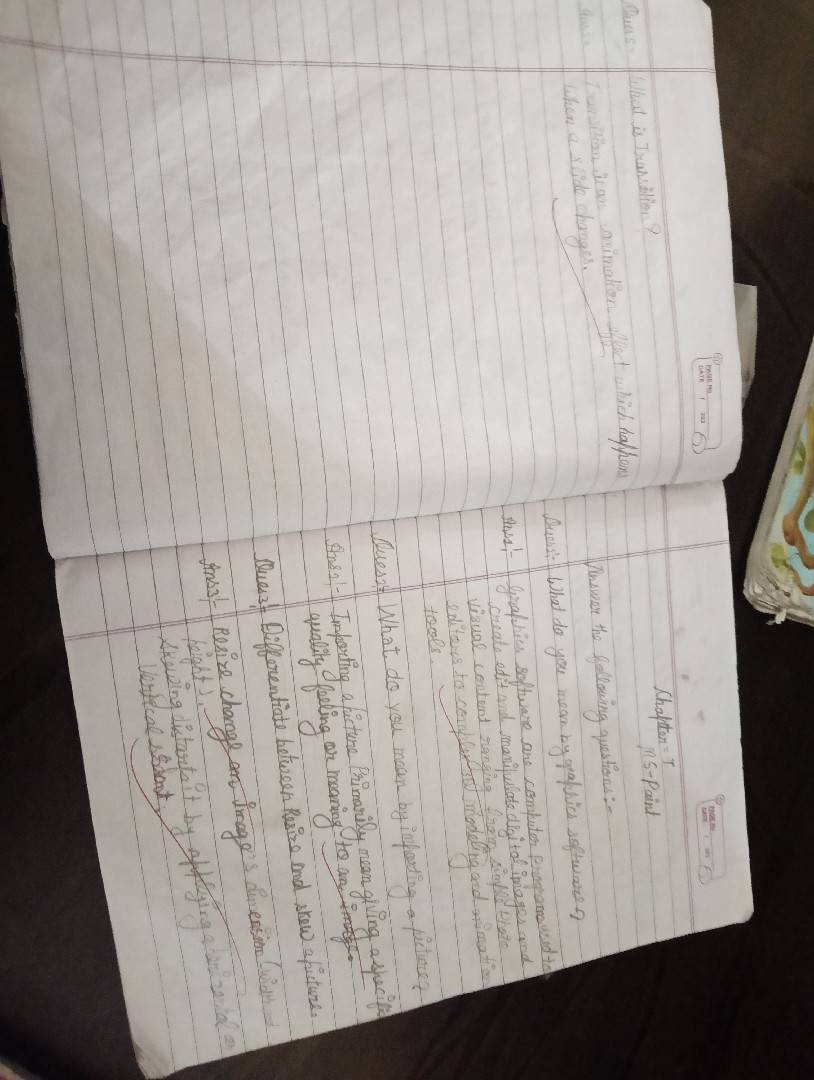 PAGE NO.
DATE
Ques:- What is Transition?
Ans:- Transition is an animation effect which happens
when a slide changes.
PAGE NO.
DATE
Chapter - 
MS-Paint
Answer the following questions:-
Ques1:- What do you mean by graphics software?
Ans1:- graphics software are computer Programs used to
create edit and manipulate digital images and
visual content ranging from simple photo
editors to complex modeling and animation
tools.
Ques2:- What do you mean by importing a picture?
Ans2:- Importing a picture Primarily mean giving a specific
quality feeling or meaning to an image.
Ques3:- Differentiate between Resize and skew a picture.
Ans3:- Resize change an image's dimension (width and
height).
skewing distorts it by applying a horizontal or
Vertical slant.